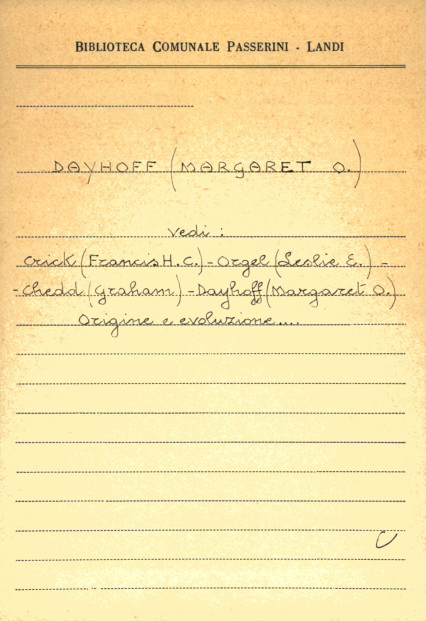 BIBLIOTECA COMUNALE PASSERINI - LANDI
DAYHOFF (MARGARET O.)
vedi :
Crick (Francis H. C.) - Orgel (Leslie E.) -
- Chedd (Graham) - Dayhoff (Margaret O.)
Origine e evoluzione....